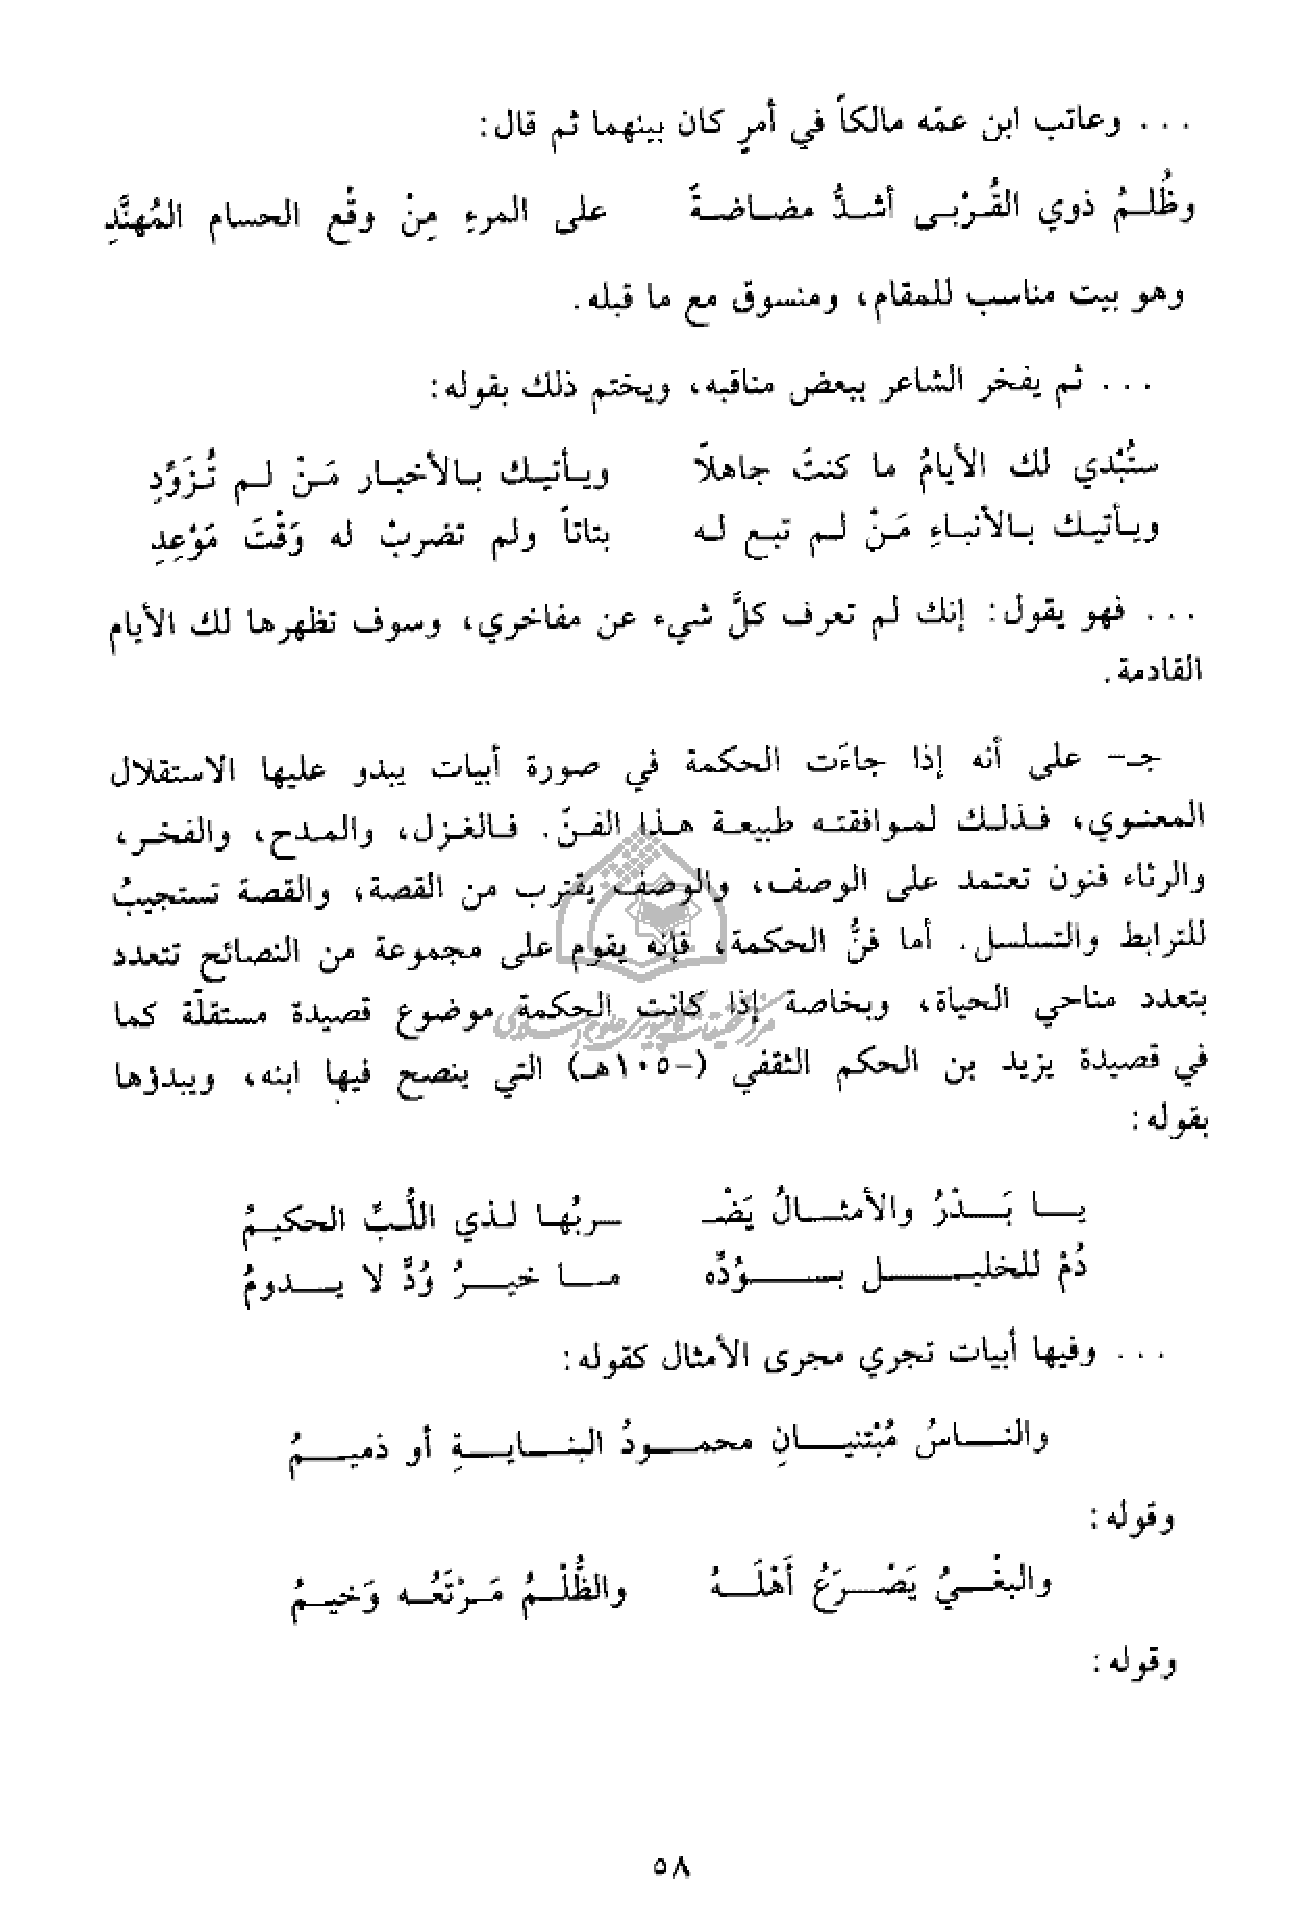 ... وعاتب ابن عمّه مالكاً في أمرٍ كان بينهما ثم قال:
وظُلمُ ذوي القُرْبى أشدُّ مضاضةً على المرءِ مِنْ وقْع الحسام المُهنَّدِ
وهو بيت مناسب للمقام، ومنسوق مع ما قبله.
... ثم يفخر الشاعر ببعض مناقبه، ويختم ذلك بقوله:
ستُبْدي لك الأيامُ ما كنتَ جاهلاً ويأتيك بالأخبار مَنْ لم تُزَوِّدِ
ويأتيك بالأنباءِ مَنْ لم تبع له بتاتاً ولم تضربْ له وَقْتَ مَوْعِدِ
... فهو يقول: إنك لم تعرف كلَّ شيء عن مفاخري، وسوف تظهرها لك الأيام
القادمة.
جـ- على أنه إذا جاءَت الحكمة في صورة أبيات يبدو عليها الاستقلال
المعنوي، فذلك لموافقته طبيعة هذا الفنّ. فالغزل، والمدح، والفخر،
والرثاء فنون تعتمد على الوصف، والوصف يقترب من القصة، والقصة تستجيبُ
للترابط والتسلسل. أما فنُّ الحكمة، فإنه يقوم على مجموعة من النصائح تتعدد
بتعدد مناحي الحياة، وبخاصة إذا كانت الحكمة موضوع قصيدة مستقلّة كما
في قصيدة يزيد بن الحكم الثقفي (-١٠٥هـ) التي ينصح فيها ابنه، ويبدؤها
بقوله:
يا بَدْرُ والأمثالُ يَضْـ ـربُها لذي اللُّبِّ الحكيمُ
دُمْ للخليل بوُدِّه ما خيرُ وُدٍّ لا يدومُ
... وفيها أبيات تجري مجرى الأمثال كقوله:
والناسُ مُبْتنيانِ محمودُ البنايةِ أو ذميمُ
وقوله:
والبغْيُ يَصْرَعُ أَهْلَهُ والظُّلْمُ مَرْتَعُه وَخيمُ
وقوله:
٥٨